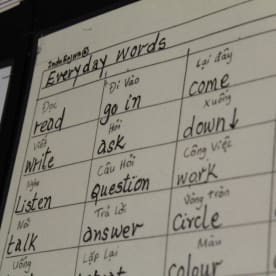 Everyday words
Đọc
read
Đi Vào
go in
Lại đây
come
Viết
write
Hỏi
ask
Xuống
down↓
Nghe
Listen
Câu Hỏi
Question
Công Việc
work
Nói
talk
Trả lời
answer
Vòng Tròn
Circle
Uống
Lặp Lại
Màu
colour